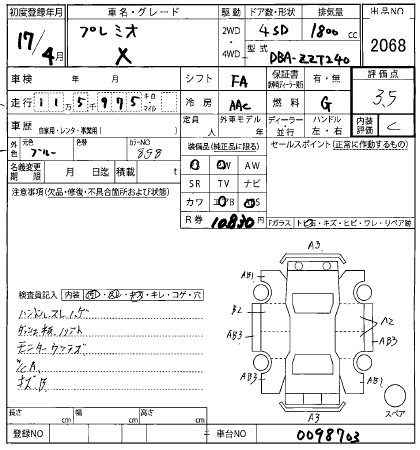 初度登録年月 車名・グレード 駆動 ドア数・形状 排気量 出品NO
17/4月 プレミオ X 2WD・4WD 4SD 1800cc 2068
型式 DBA-ZZT240
車検 年 月 シフト FA 保証書 有・無 評価点 3.5
走行 115千975 キロ・マイル 冷房 AAC 燃料 G
車歴 自家用・レンタ・事業用( ) 定員 人 外車モデル 年 ディーラー・並行 ハンドル 左・右 内装評価 C
外色 元色 ブルー 色替 カラーNO 8S8 装備品(純正品に限る) セールスポイント(正常に作動するもの)
名義変更期限 月 日迄 積載 t
PS PW AW
SR TV ナビ
カワ エアB
R券 10830
注意事項(欠品・修復・不具合箇所および状態) Fガラス トビ石・キズ・ヒビ・ワレ・リペア跡
A3
AB1 AB1
B2 A2
AB3 AB3
AB3 AB1
A3
スペア
検査員記入 内装 キレ・コゲ・穴
ハンドルスレハゲ
モニター
W/CA
キズ.B
長さ cm 幅 cm 高さ cm
登録NO 車台NO 0098703